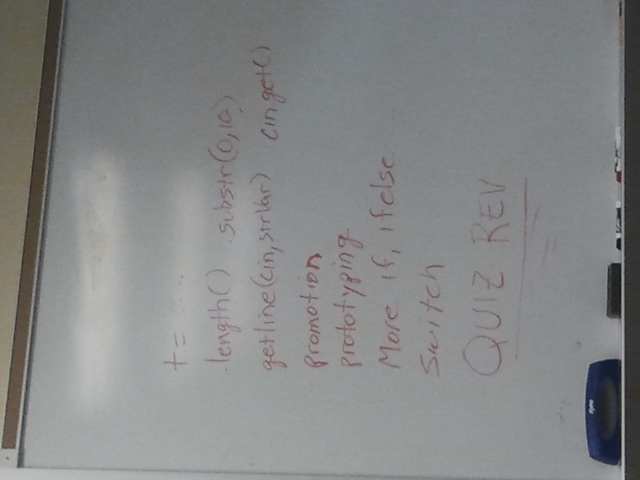 += .....
.length() .substr(0,10)
getline(cin,strVar) cin.get()
promotion
prototyping
More if, ifelse
Switch
QUIZ REV